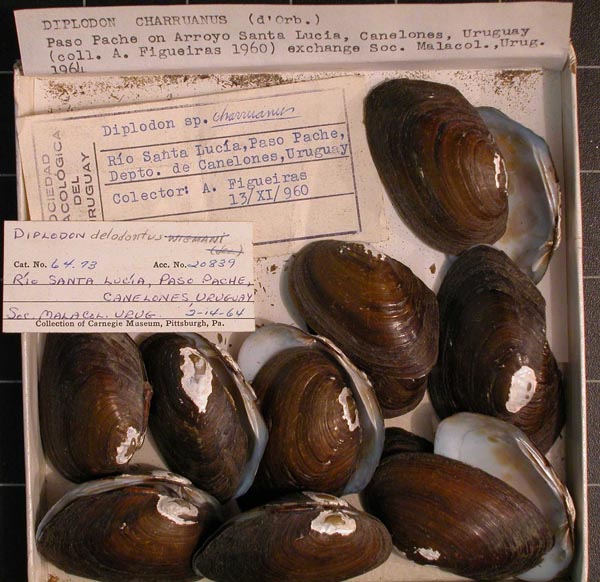 DIPLODON CHARRUANUS (d'Orb.)
Paso Pache on Arroyo Santa Lucia, Canelones, Uruguay
(coll. A. Figueiras 1960) exchange Soc. Malacol.,Urug.
1964
SOCIEDAD
MALACOLÓGICA
DEL
URUGUAY
Diplodon sp. charruanus
Río Santa Lucía,Paso Pache,
Depto. de Canelones,Uruguay
Colector: A. Figueiras
13/XI/960
DIPLODON delodontus WIGMANI
Cat. No. 64.73 Acc. No. 20839
RÍO SANTA LUCÍA, PASO PACHE,
CANELONES, URUGUAY
SOC. MALACOL. URUG. 2-14-64
Collection of Carnegie Museum, Pittsburgh, Pa.